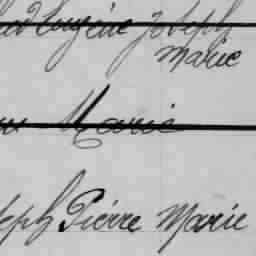 Eugène Joseph
Marie
Marie
Pierre Marie